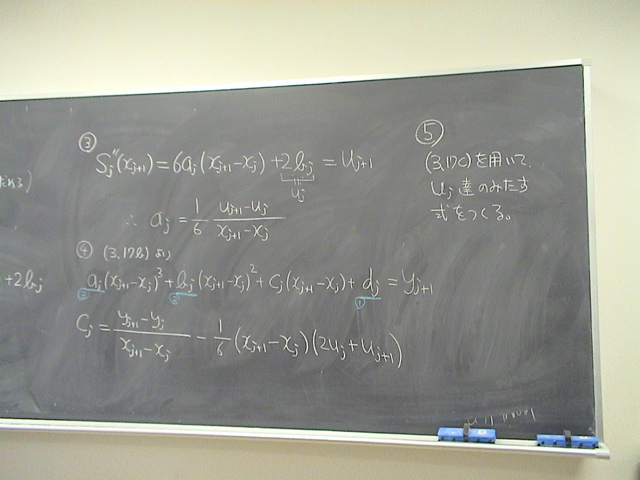 ③
S_j''(x_{j+1}) = 6a_j(x_{j+1}-x_j) + 2b_j = u_{j+1}
u_j
∴ a_j = \frac{1}{6} \frac{u_{j+1}-u_j}{x_{j+1}-x_j}
④ (3.17b) より
+2b_j
a_j(x_{j+1}-x_j)^3 + b_j(x_{j+1}-x_j)^2 + c_j(x_{j+1}-x_j) + d_j = y_{j+1}
③ ② ①
c_j = \frac{y_{j+1}-y_j}{x_{j+1}-x_j} - \frac{1}{6}(x_{j+1}-x_j)(2u_j+u_{j+1})
⑤
(3.17c)を用いて、
u_j 達のみたす
式をつくる。